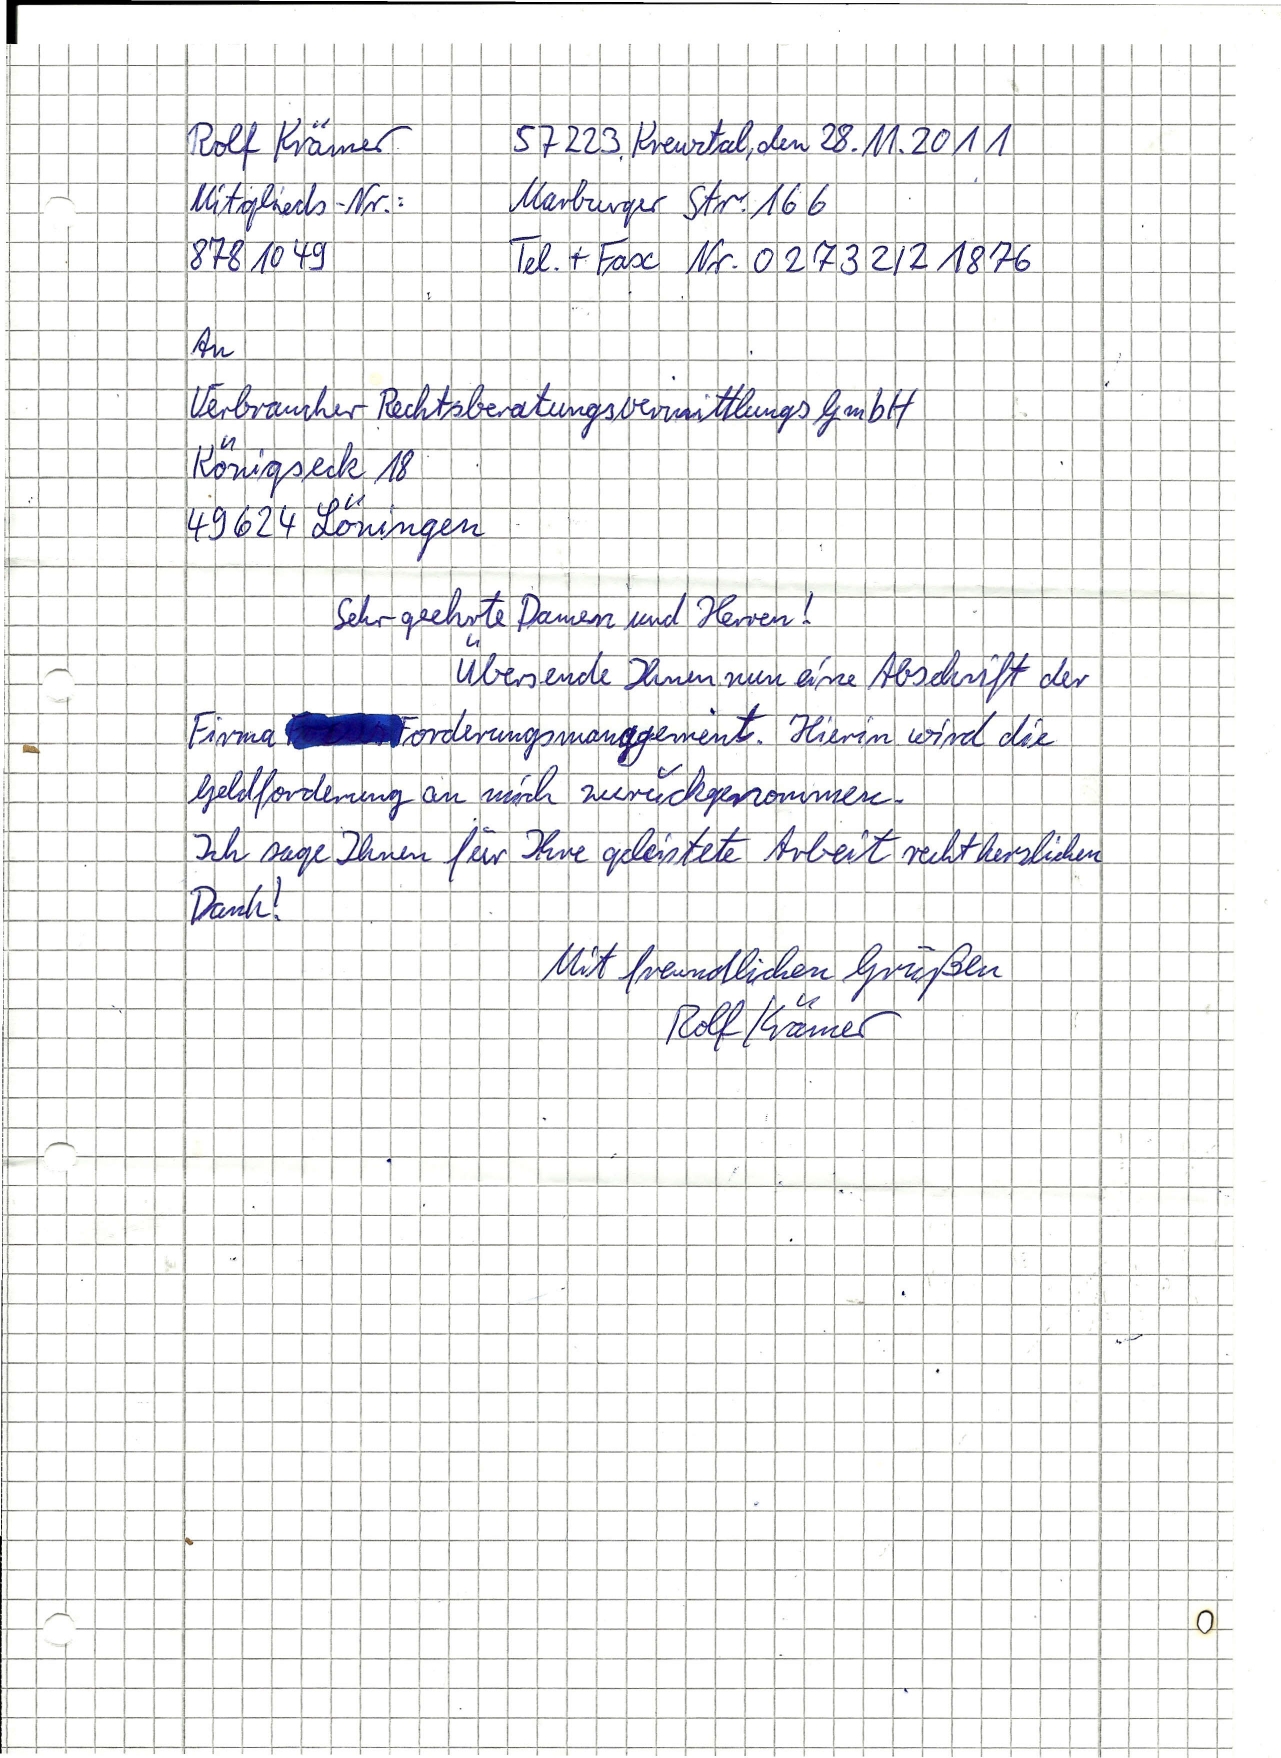 Rolf Krämer 57223 Kreuztal, den 28.11.2011
Mitglieds-Nr.: Marburger Str. 166
8781049 Tel. + Fax Nr. 02732/21876
An
Verbraucher Rechtsberatungsvermittlungs GmbH
Königseck 18
49624 Löningen
Sehr geehrte Damen und Herren!
Übersende Ihnen nun eine Abschrift der
Firma Forderungsmanagement. Hierin wird die
Geldforderung an mich zurückgenommen.
Ich sage Ihnen für Ihre geleistete Arbeit recht herzlichen
Dank!
Mit freundlichen Grüßen
Rolf Krämer
0